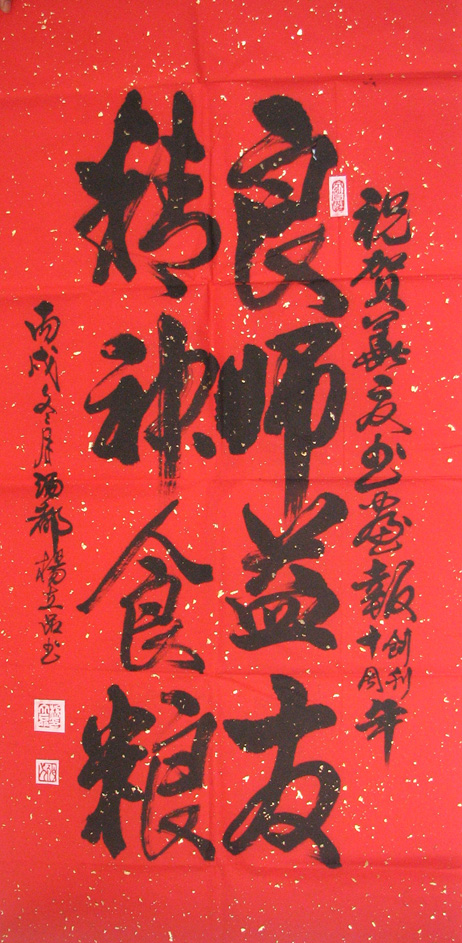 祝贺义友书画报创刊十周年
良师益友
精神食粮
丙戌冬月汤都杨立品书